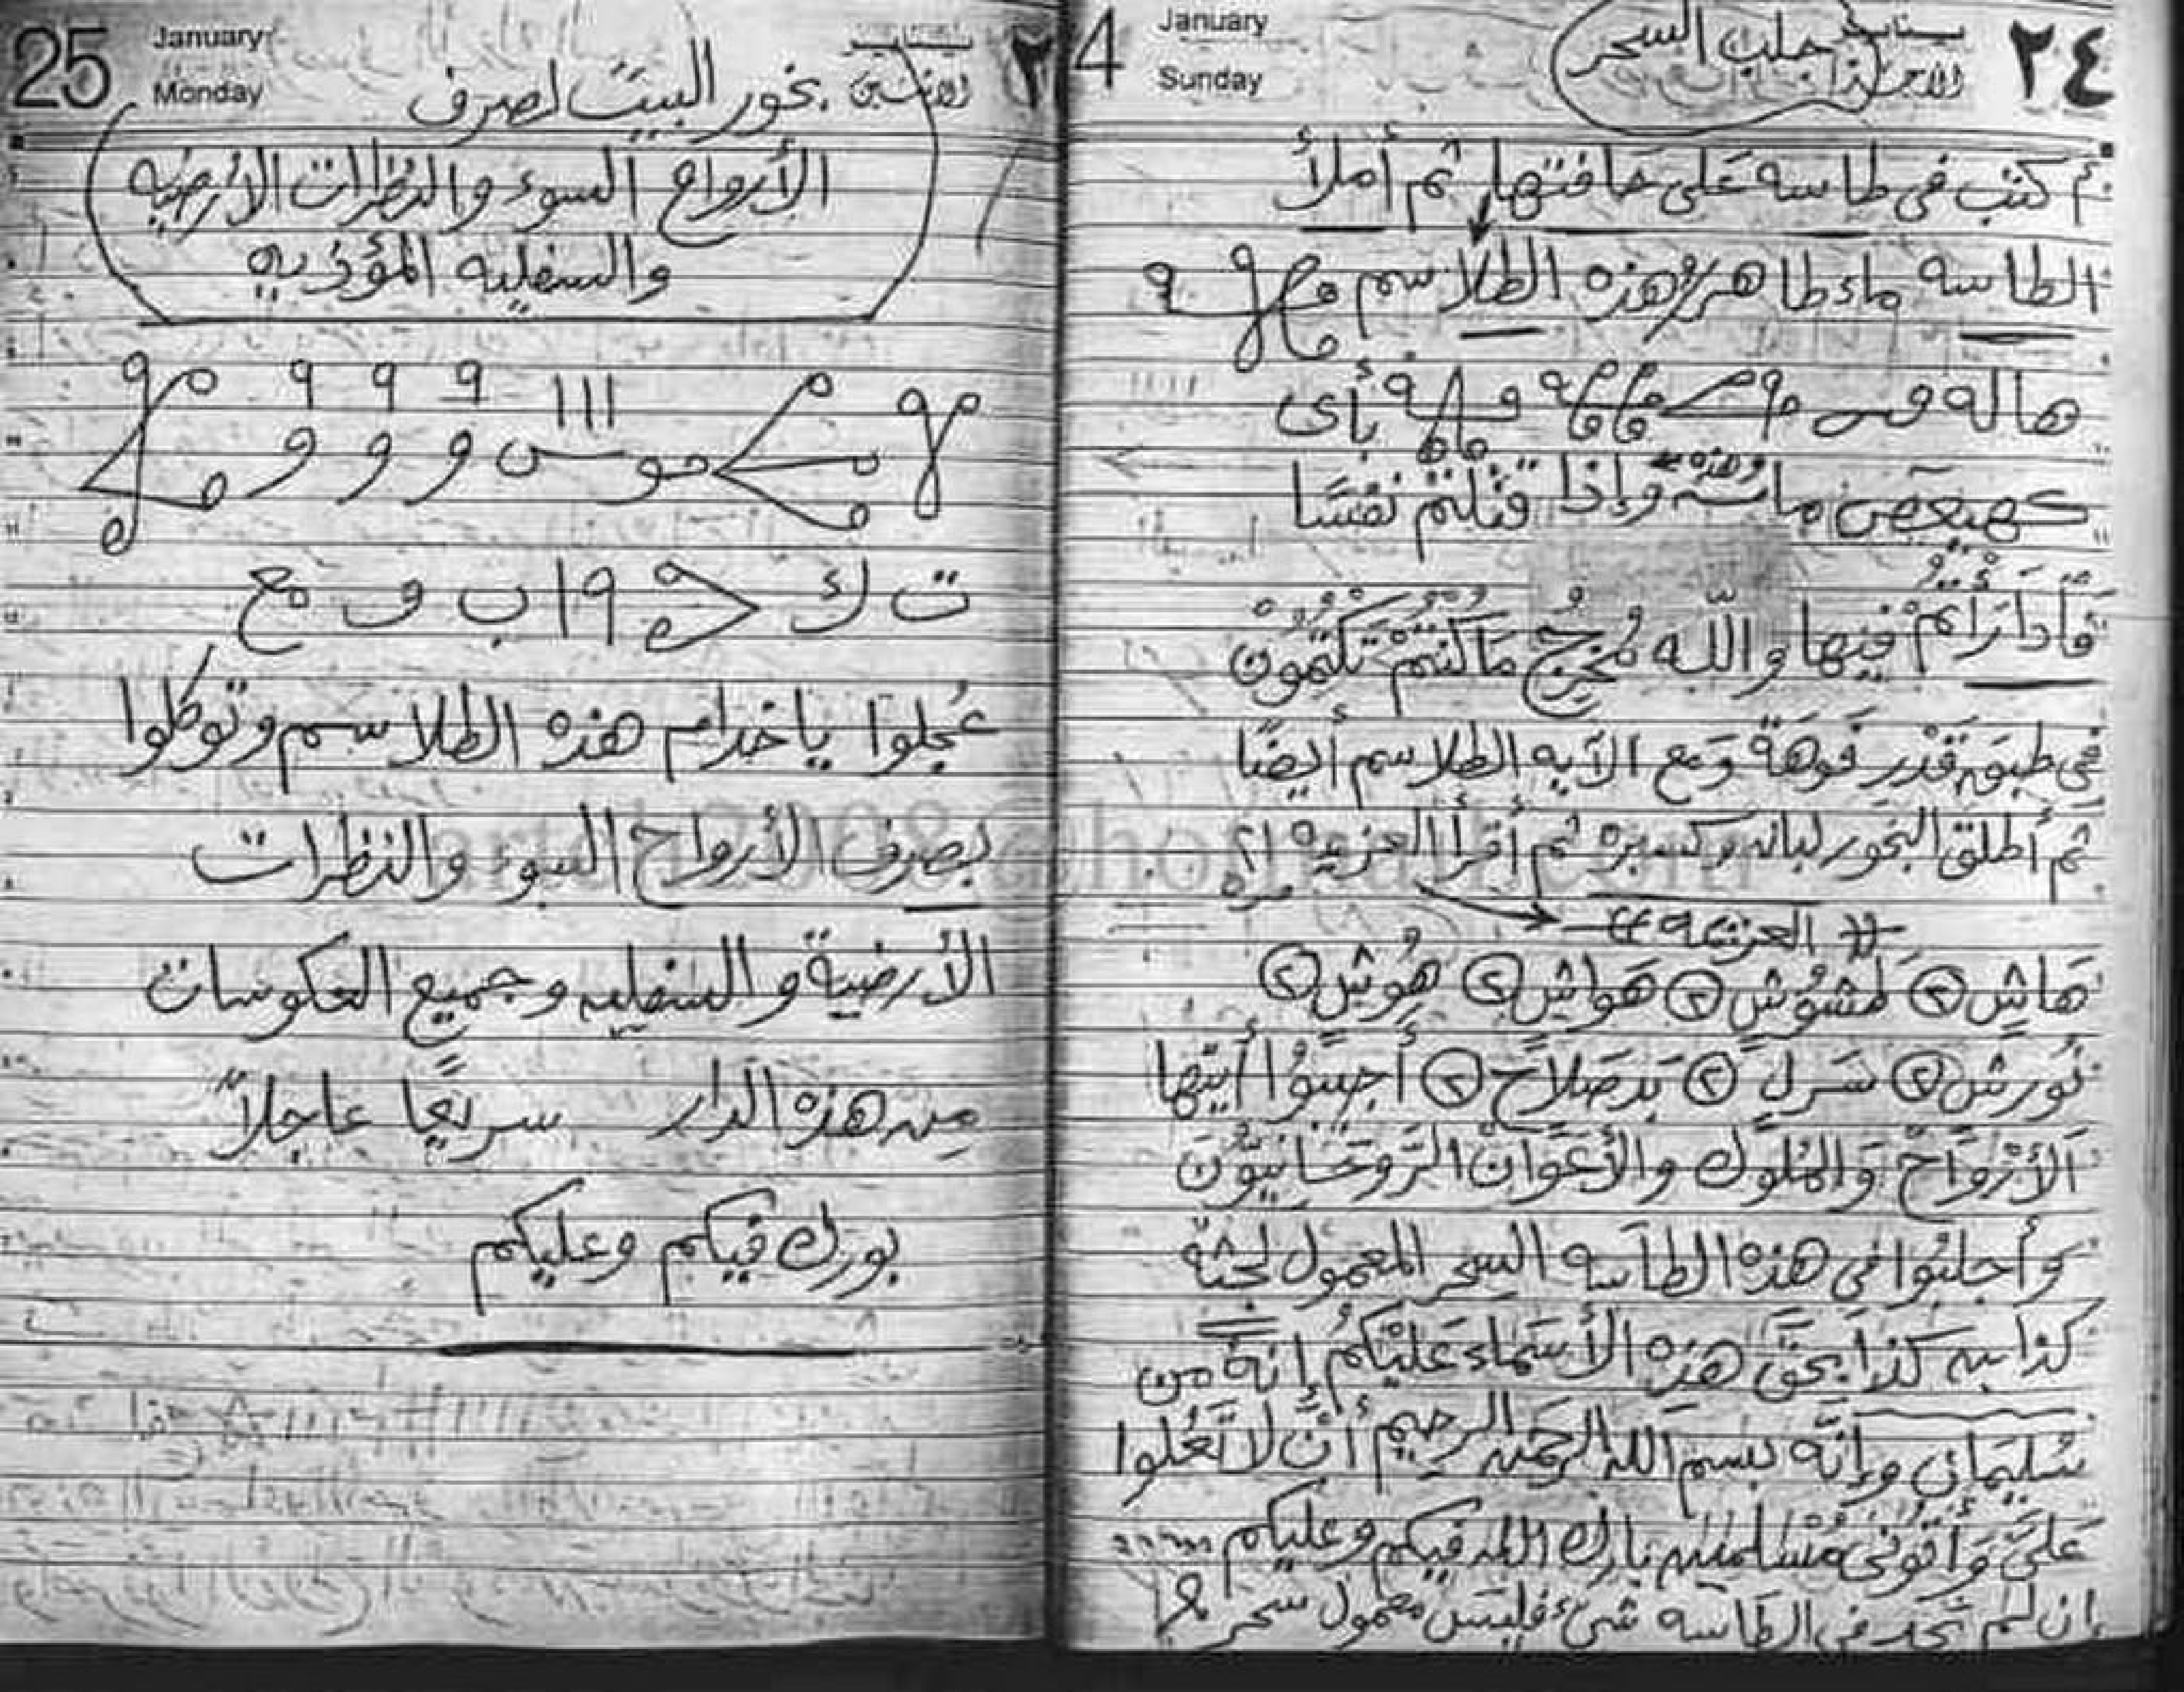 ٢٤
January
Sunday
4
جلب السحر
أكتب فى طاسه عَلى حافتها ثم أملأ
الطاسه ماء طاهر وهذه الطلاسم
هاله
بأى
كهيعص وهذه وإذا قتلتم نفسًا
فَادارأتم فيها والله مُخرجُ مَا كُنتمْ تكتُمُونْ
فى طبق قَدْر فَوهَة وَمع الآيه الطلاسم أيضًا
ثم أطلق البخور لبان وكسبره ثم أقرأ العزيمه ٢١
مره
العزيمه
هَاشٍ ٢ طَشوُشٍ ٢ هَواشٍ ٢ هُوشٍ ٢
نَورشٍ ٢ سَرلٍ ٢ بَدصَلاحٍ ٢ أَجيبُوا أَيتها
الأرْوَاح وَالملوك والأعَوَانْ الرَّوحَانيوُن
وَأجلبُوا فى هَذه الطاسه السحر المعمول لجثة
كذا بن كذا بحَق هَذِه الأسَماء عَليْكمُ إنهُ من
سُليمَان وإنَّه بسم الله الرحمن الرحيم أنْ لا تَعْلوا
عَلىَّ وَأتُونى مُسْلمين بارك الله فيكم وعليكم
إن لم تجد فى الطاسه شئ فليس معمول سحر
25
January
Monday
يناير
الاثنين
بخور البيت لصرف
الأرواح السوء والنظرات الأرضيه
والسفليه المؤذيه
١١١
٩ ٩ ٩
و و و
ت ك
ا ٩ ب ف مع
عَجلوا ياخدام هذه الطلاسم وتوكلوا
بصرف الأرواح السوء والنظرات
الأرضية والسفليه وجميع العكوسات
من هذه الدار سريعًا عاجلاً
بورك فيكم وعليكم